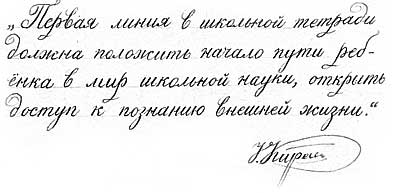 „Первая линия в школьной тетради
должна положить начало пути реб-
ёнка в мир школьной науки, открыть
доступ к познанию внешней жизни.“